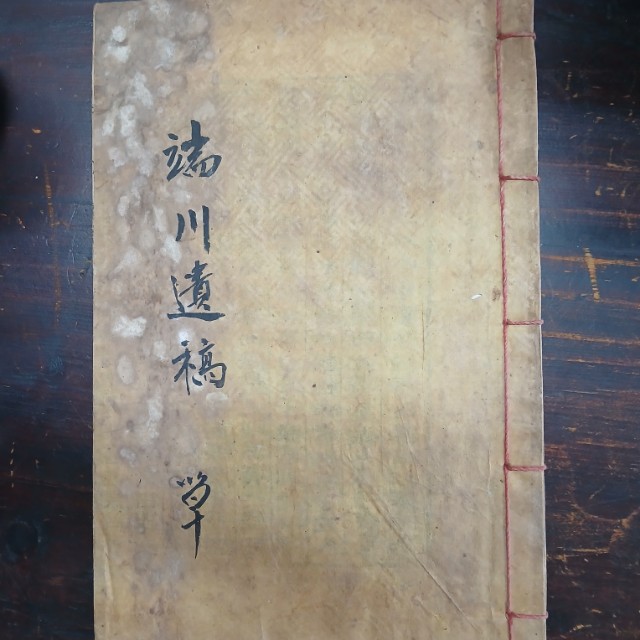 端川遺稿 單